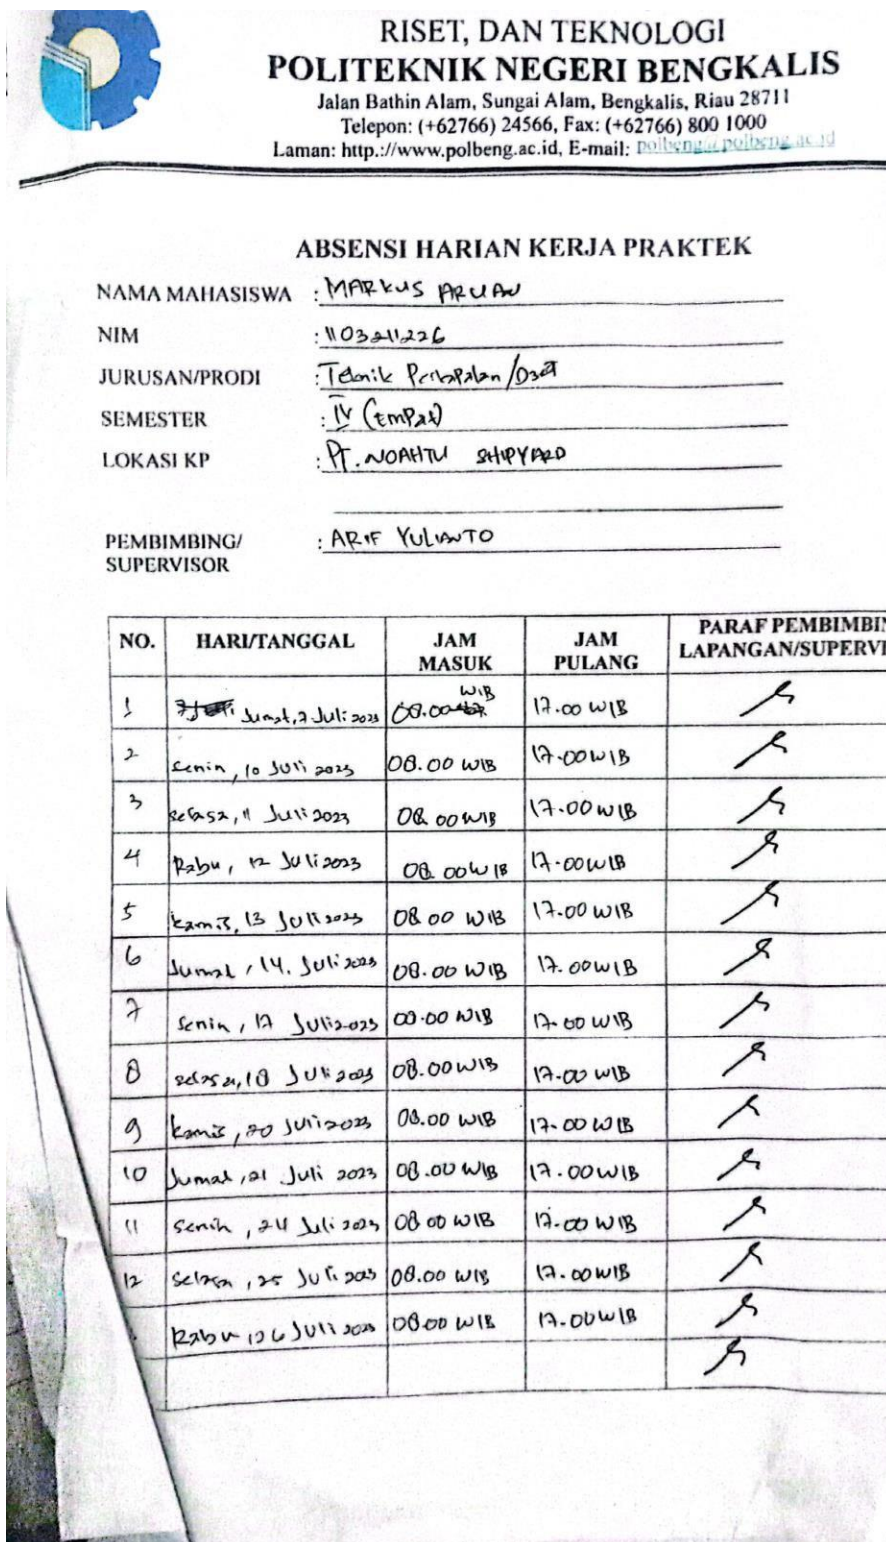 RISET, DAN TEKNOLOGI
POLITEKNIK NEGERI BENGKALIS
Jalan Bathin Alam, Sungai Alam, Bengkalis, Riau 28711
Telepon: (+62766) 24566, Fax: (+62766) 800 1000
Laman: http.://www.polbeng.ac.id, E-mail: polbeng@polbeng.ac.id
ABSENSI HARIAN KERJA PRAKTEK
NAMA MAHASISWA : MARKUS ARUAN
NIM : 1103211226
JURUSAN/PRODI : Teknik Perkapalan/D3
SEMESTER : IV (EmPat)
LOKASI KP : PT. NOAHTU SHIPYARD
PEMBIMBING/ : ARIF YULIANTO
SUPERVISOR
NO. HARI/TANGGAL JAM MASUK JAM PULANG PARAF PEMBIMBIN LAPANGAN/SUPERVI
1 Jumat, 7 Juli 2023 08.00 WIB 17.00 WIB
2 Senin, 10 Juli 2023 08.00 WIB 17.00 WIB
3 Selasa, 11 Juli 2023 08.00 WIB 17.00 WIB
4 Rabu, 12 Juli 2023 08.00 WIB 17.00 WIB
5 Kamis, 13 Juli 2023 08.00 WIB 17.00 WIB
6 Jumat, 14. Juli 2023 08.00 WIB 17.00 WIB
7 Senin, 17 Juli 2023 08.00 WIB 17.00 WIB
8 Selasa, 18 Juli 2023 08.00 WIB 17.00 WIB
9 Kamis, 20 Juli 2023 08.00 WIB 17.00 WIB
10 Jumat, 21 Juli 2023 08.00 WIB 17.00 WIB
11 Senin, 24 Juli 2023 08.00 WIB 17.00 WIB
12 Selasa, 25 Juli 2023 08.00 WIB 17.00 WIB
Rabu, 26 Juli 2023 08.00 WIB 17.00 WIB